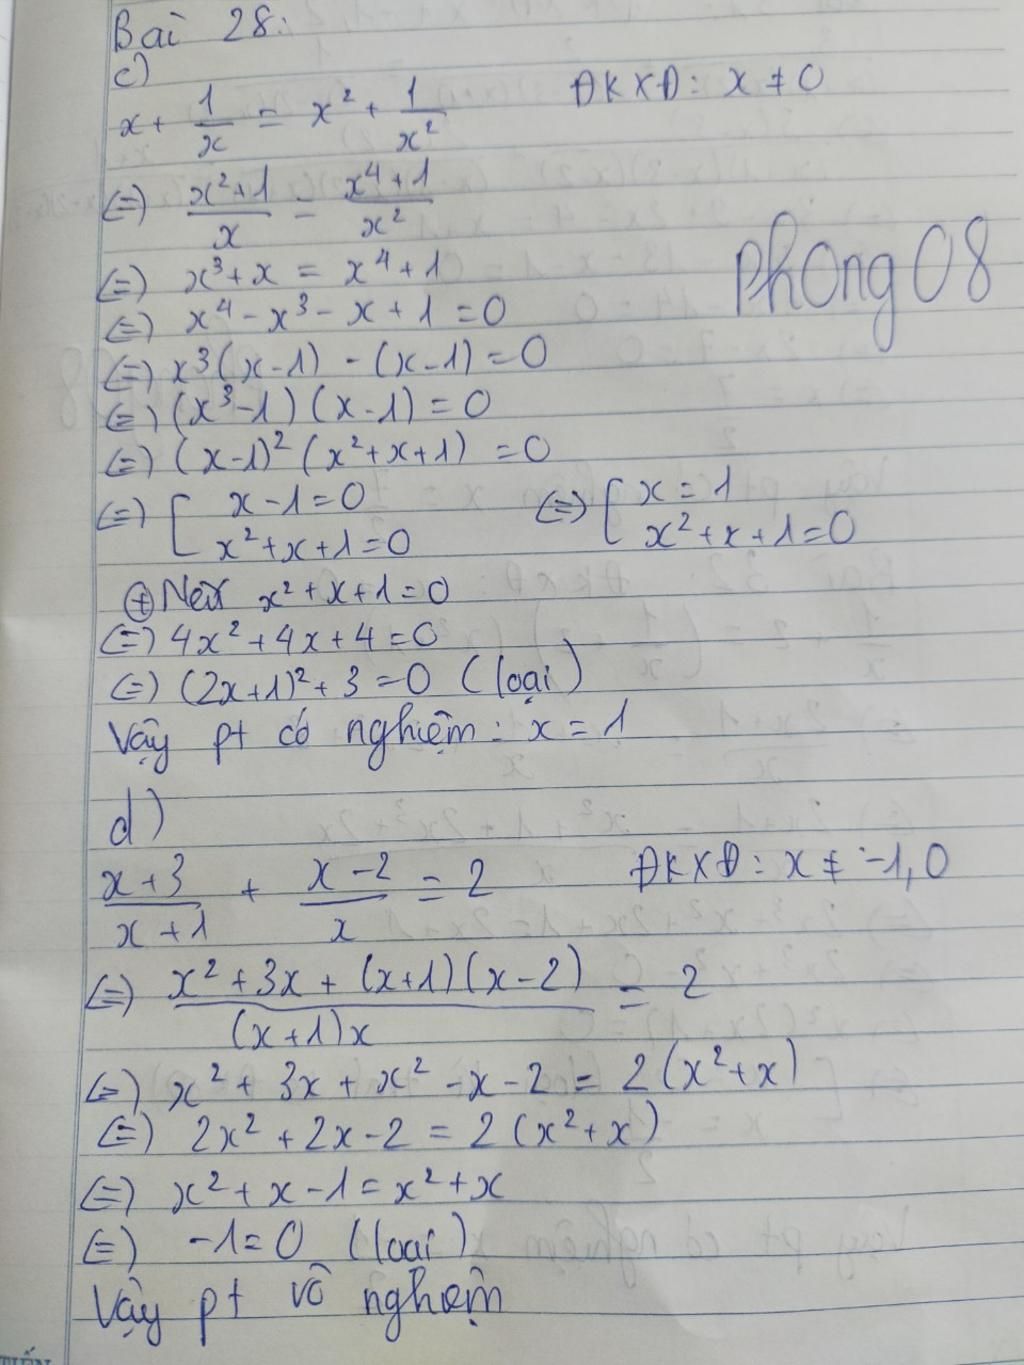 Bài 28:
c)
x + 1/x = x² + 1/x² ĐKXĐ: x ≠ 0
(=) (x²+1)/x = (x⁴+1)/x²
(=) x³ + x = x⁴ + 1
(=) x⁴ - x³ - x + 1 = 0
(=) x³(x-1) - (x-1) = 0
(=) (x³-1)(x-1) = 0
(=) (x-1)² (x²+x+1) = 0
(=) [ x-1=0 (=) [ x=1
x²+x+1=0 x²+x+1=0
⊕ Nếu x²+x+1=0
(=) 4x²+4x+4=0
(=) (2x+1)²+3=0 (loại)
Vậy pt có nghiệm: x = 1
Phong 08
d)
(x+3)/(x+1) + (x-2)/x = 2 ĐKXĐ: x ≠ -1,0
(=) (x²+3x+(x+1)(x-2))/((x+1)x) = 2
(=) x² + 3x + x² - x - 2 = 2(x²+x)
(=) 2x² + 2x - 2 = 2(x²+x)
(=) x² + x - 1 = x² + x
(=) -1=0 (loại)
Vậy pt vô nghiệm